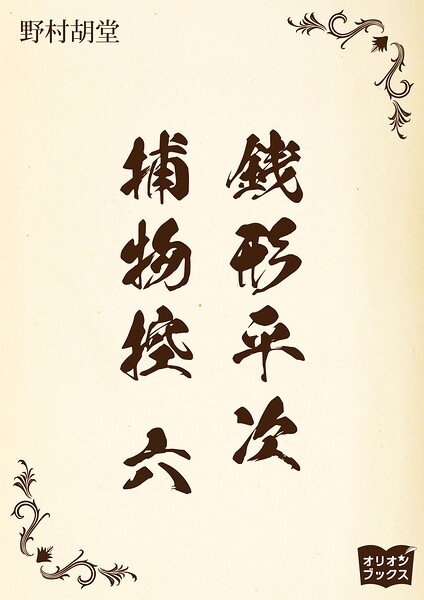 野村胡堂
銭形平次
捕物控 六
オリオン
ブックス